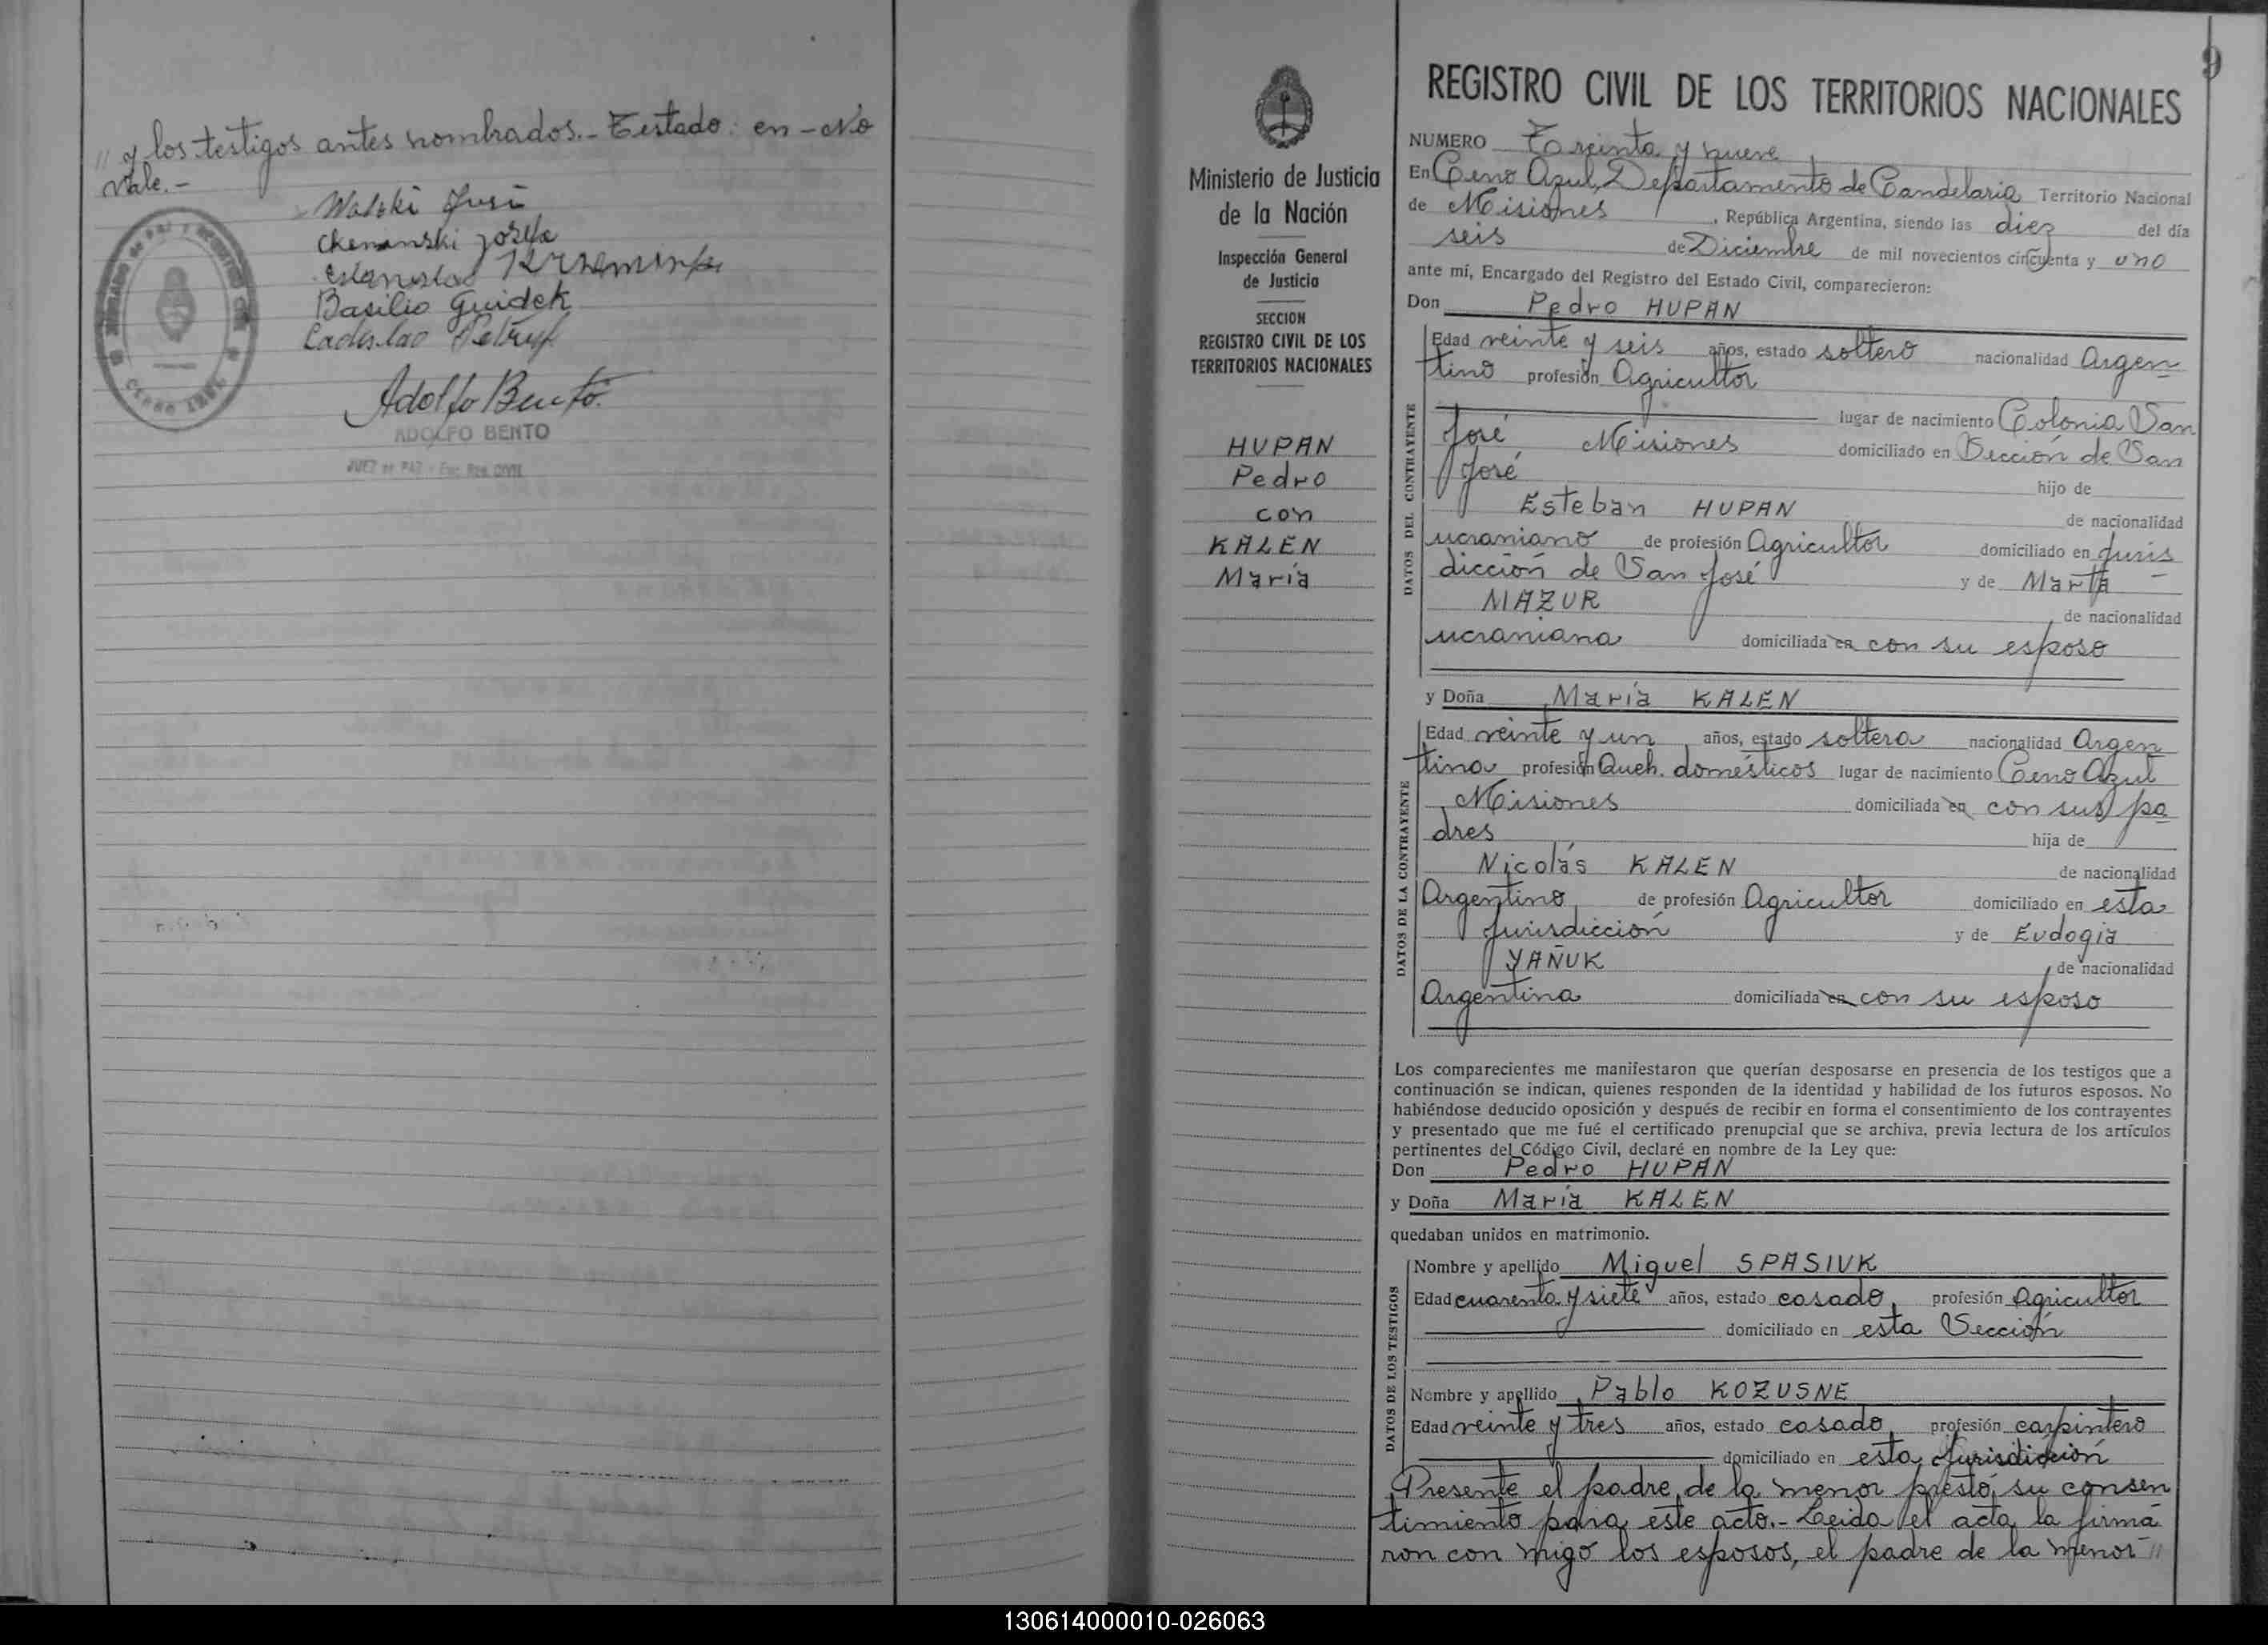 // y los testigos antes nombrados.- Testado: en - No
vale.-
Chemanski Josefa
Basilio Guidek
Ladislao
Adolfo Bento
ADOLFO BENTO
JUEZ de PAZ - Enc. Reg. CIVIL
9
Ministerio de Justicia
de la Nación
Inspección General
de Justicia
SECCION
REGISTRO CIVIL DE LOS
TERRITORIOS NACIONALES
HUPAN
Pedro
con
KALEN
María
REGISTRO CIVIL DE LOS TERRITORIOS NACIONALES
NUMERO Treinta y nueve
En Cerro Azul, Departamento de Candelaria Territorio Nacional
de Misiones, República Argentina, siendo las diez del día
seis de Diciembre de mil novecientos cincuenta y uno
ante mí, Encargado del Registro del Estado Civil, comparecieron:
Don Pedro HUPAN
DATOS DEL CONTRAYENTE
Edad veinte y seis años, estado soltero nacionalidad Argen
tino profesión Agricultor
lugar de nacimiento Colonia San
José Misiones domiciliado en Sección de San
José hijo de
Esteban HUPAN de nacionalidad
ucraniano de profesión Agricultor domiciliado en Juris
dicción de San José y de Marta
MAZUR de nacionalidad
ucraniana domiciliada en con su esposo
y Doña María KALEN
DATOS DE LA CONTRAYENTE
Edad veinte y un años, estado soltera nacionalidad Argen
tina profesión Queh. domésticos lugar de nacimiento Cerro Azul
Misiones domiciliada en con sus pa
dres hija de
Nicolás KALEN de nacionalidad
Argentino de profesión Agricultor domiciliado en esta
Jurisdicción y de Eudogia
YAÑUK de nacionalidad
Argentina domiciliada en con su esposo
Los comparecientes me manifestaron que querían desposarse en presencia de los testigos que a
continuación se indican, quienes responden de la identidad y habilidad de los futuros esposos. No
habiéndose deducido oposición y después de recibir en forma el consentimiento de los contrayentes
y presentado que me fué el certificado prenupcial que se archiva, previa lectura de los artículos
pertinentes del Código Civil, declaré en nombre de la Ley que:
Don Pedro HUPAN
y Doña María KALEN
quedaban unidos en matrimonio.
DATOS DE LOS TESTIGOS
Nombre y apellido Miguel SPASIUK
Edad cuarenta y siete años, estado casado, profesión Agricultor
domiciliado en esta Sección
Nombre y apellido Pablo KOZUSNE
Edad veinte y tres años, estado casado, profesión carpintero
domiciliado en esta Jurisdicción
Presente el padre de la menor prestó su consen
timiento para este acto.- Leida el acta la firma
ron con migo los esposos, el padre de la menor //
130614000010-026063